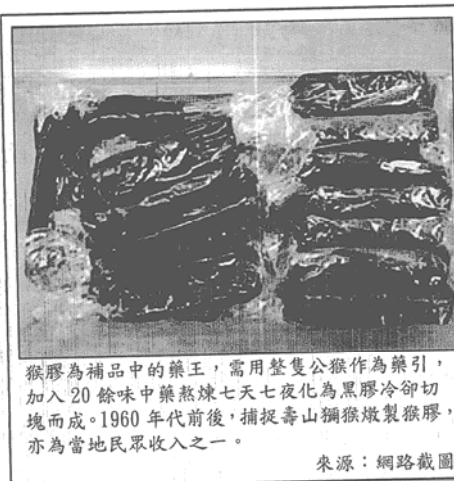 猴膠為補品中的藥王，需用整隻公猴作為藥引，
加入 20 餘味中藥熬煉七天七夜化為黑膠冷卻切
塊而成。1960 年代前後，捕捉壽山獼猴燉製猴膠，
亦為當地民眾收入之一。
來源：網路截圖